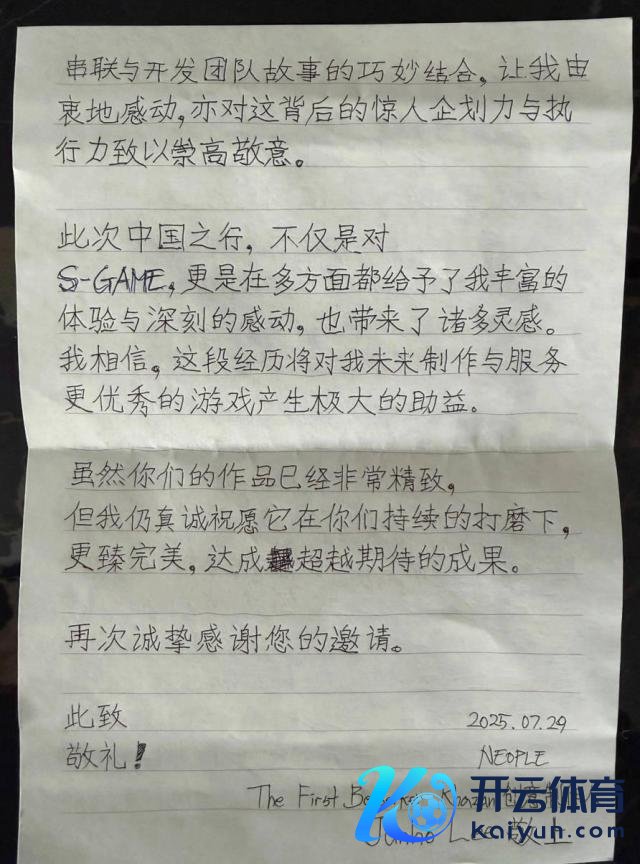 串联与开发团队故事的巧妙结合，让我由
衷地感动，亦对这背后的惊人企划力与执
行力致以崇高敬意。
此次中国之行，不仅是对
S-GAME，更是在多方面都给予了我丰富的
体验与深刻的感动，也带来了诸多灵感。
我相信，这段经历将对我未来制作与服务
更优秀的游戏产生极大的助益。
虽然你们的作品已经非常精致，
但我仍真诚祝愿它在你们持续的打磨下，
更臻完美，达成超越期待的成果。
再次诚挚感谢您的邀请。
此致
2025.07.29
敬礼！
NEOPLE
The First Berserker Khazan创意
Junho Lee 敬上
开云体育
kaiyun.com